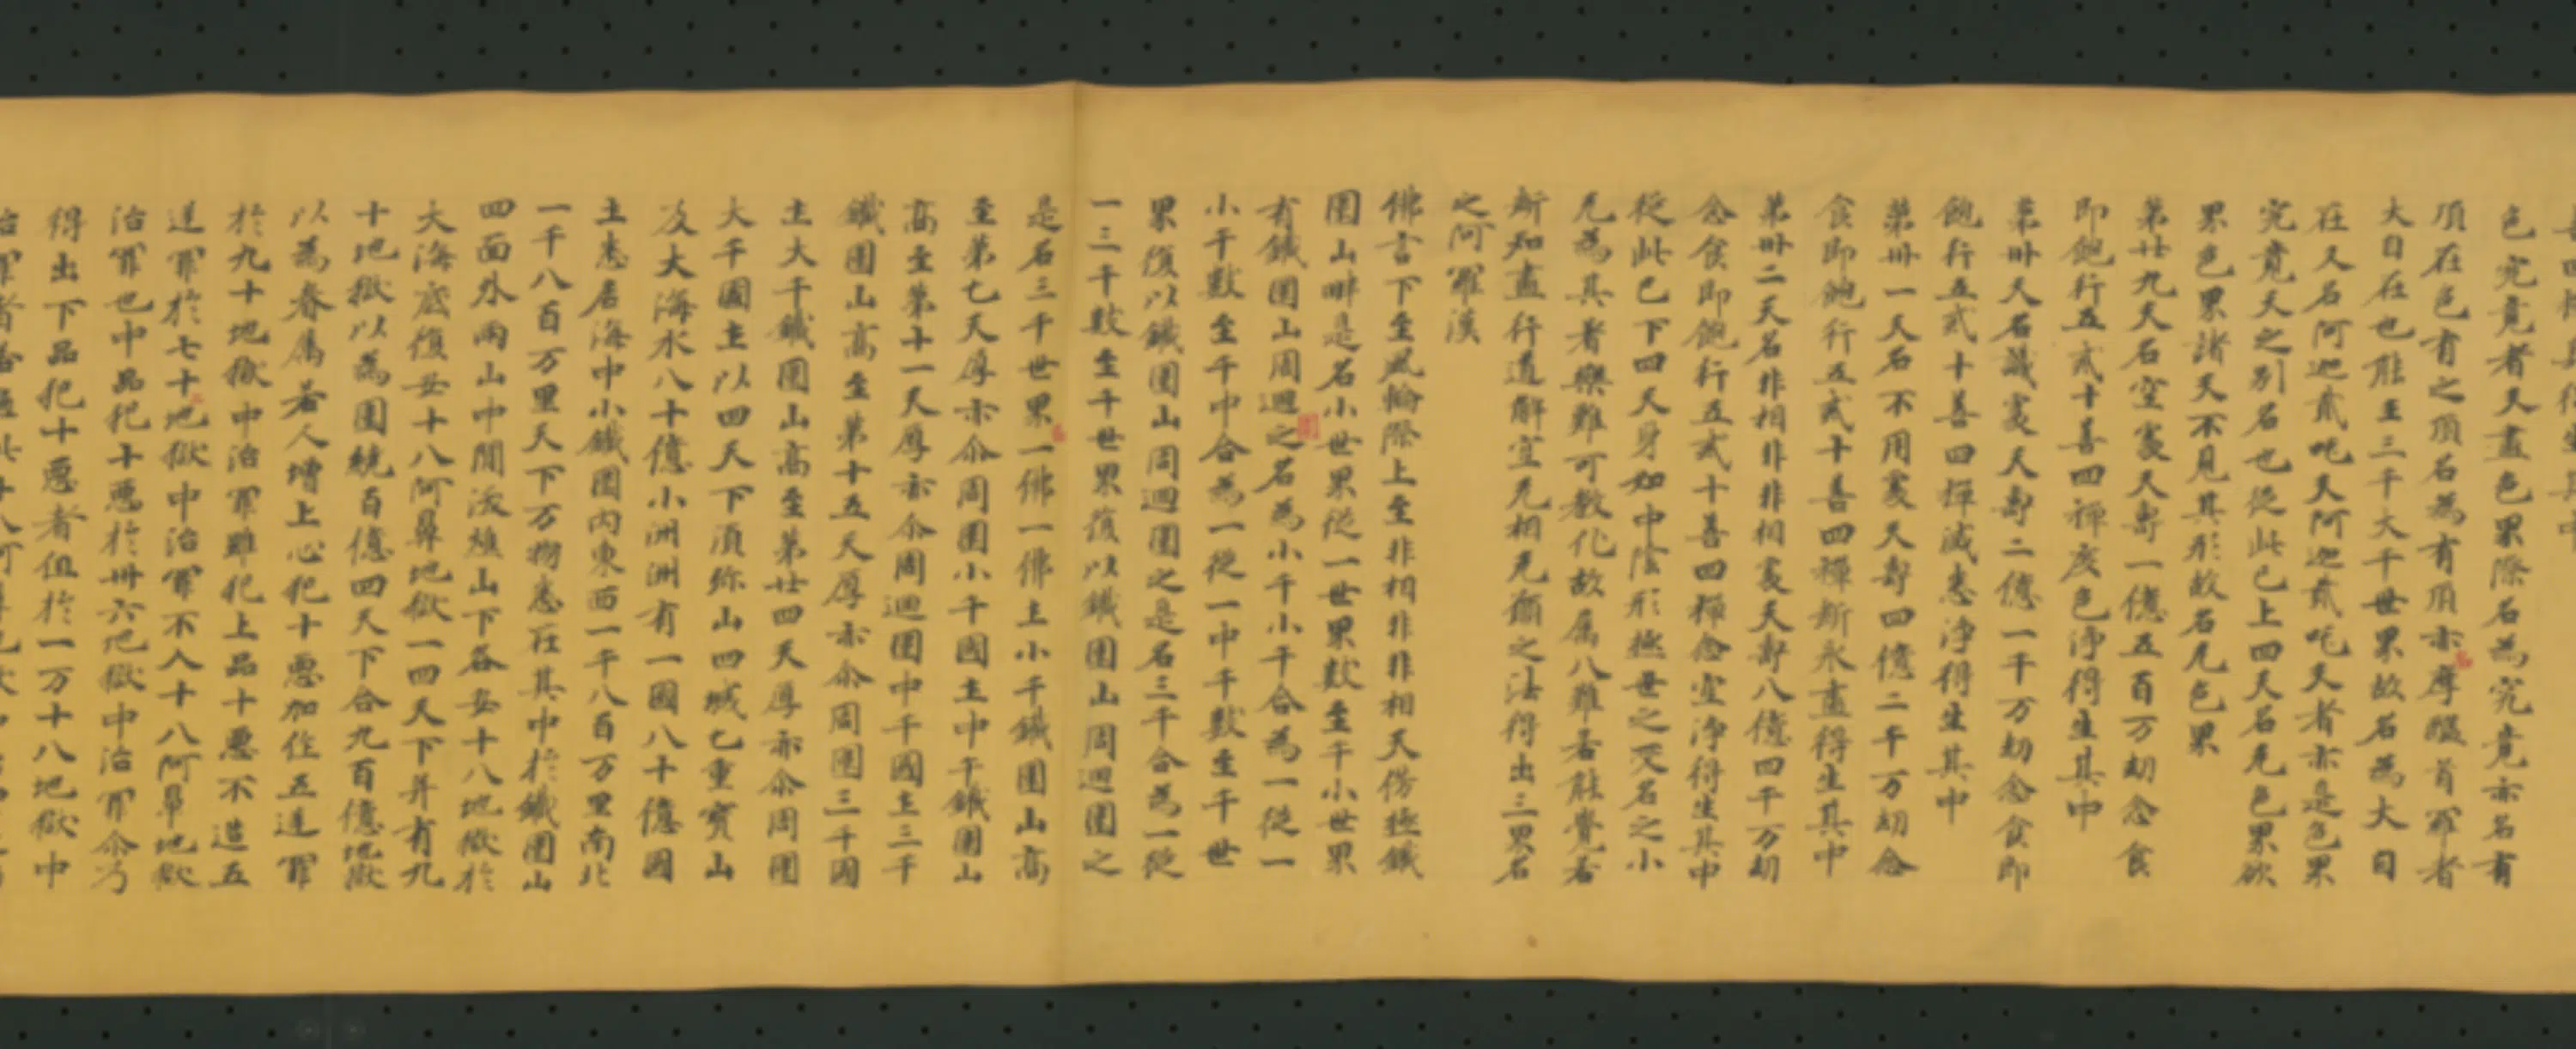 色究竟者又盡色界際名為究竟亦名有
頂在色有之頂名為有頂亦摩醯首羅者
大自在也能主三千大千世界故名為大自
在又名阿迦貳吒天阿迦貳吒天者亦是色界
究竟天之別名也從此已上四天名无色界欲
界色界諸天不見其形故名无色界
第廿九天名空處天壽一億五百万劫念食
即飽行五貳十善四禪度色淨得生其中
第卅天名識處天壽二億一千万劫念食即
飽行五貳十善四禪滅悉淨得生其中
第卅一天名不用處天壽四億二千万劫念
食即飽行五貳十善四禪斷永盡得生其中
第卅二天名非相非非相處天壽八億四千万劫
念食即飽行五貳十善四禪念空淨得生其中
從此已下四天身如中陰形極世之灵名之小
无為其者樂難可教化故属八難若能覺若
斯知盡行道解空无相无願之法得出三界名
之阿羅漢
佛言下至風輪際上至非相非非相天傍極鐵
圍山畔是名小世界從一世界數至千小世界
有鐵圍山周迴之名為小千小千合為一從一
小千數至千中合為一從一中千數至千世
界復以鐵圍山周迴圍之是名三千合為一從
一三千數至千世界復以鐵圍山周迴圍之
是名三千世界一佛一佛主小千鐵圍山高
至第七天厚亦尒周圍小千國主中千鐵圍山
高至第十一天厚亦尒周迴圍中千國主三千
鐵圍山高至第十五天厚亦尒周圍三千國
主大千鐵圍山高至第廿四天厚亦尒周圍
大千國主以四天下須弥山四城七重寳山
及大海水八十億小洲洲有一國八十億國
土悉居海中小鐵圍內東西一千八百万里南北
一千八百万里天下万物悉在其中於鐵圍山
四面外兩山中間沃燋山下各安十八地獄於
大海底復安十八阿鼻地獄一四天下并有九
十地獄以為圍繞百億四天下合九百億地獄
以為眷属若人增上心犯十惡加住五逆罪
於九十地獄中治罪雖犯上品十惡不造五
逆罪於七十地獄中治罪不入十八阿鼻地獄
治罪也中品犯十惡於卅六地獄中治罪尒乃
得出下品犯十惡者但於一万十八地獄中